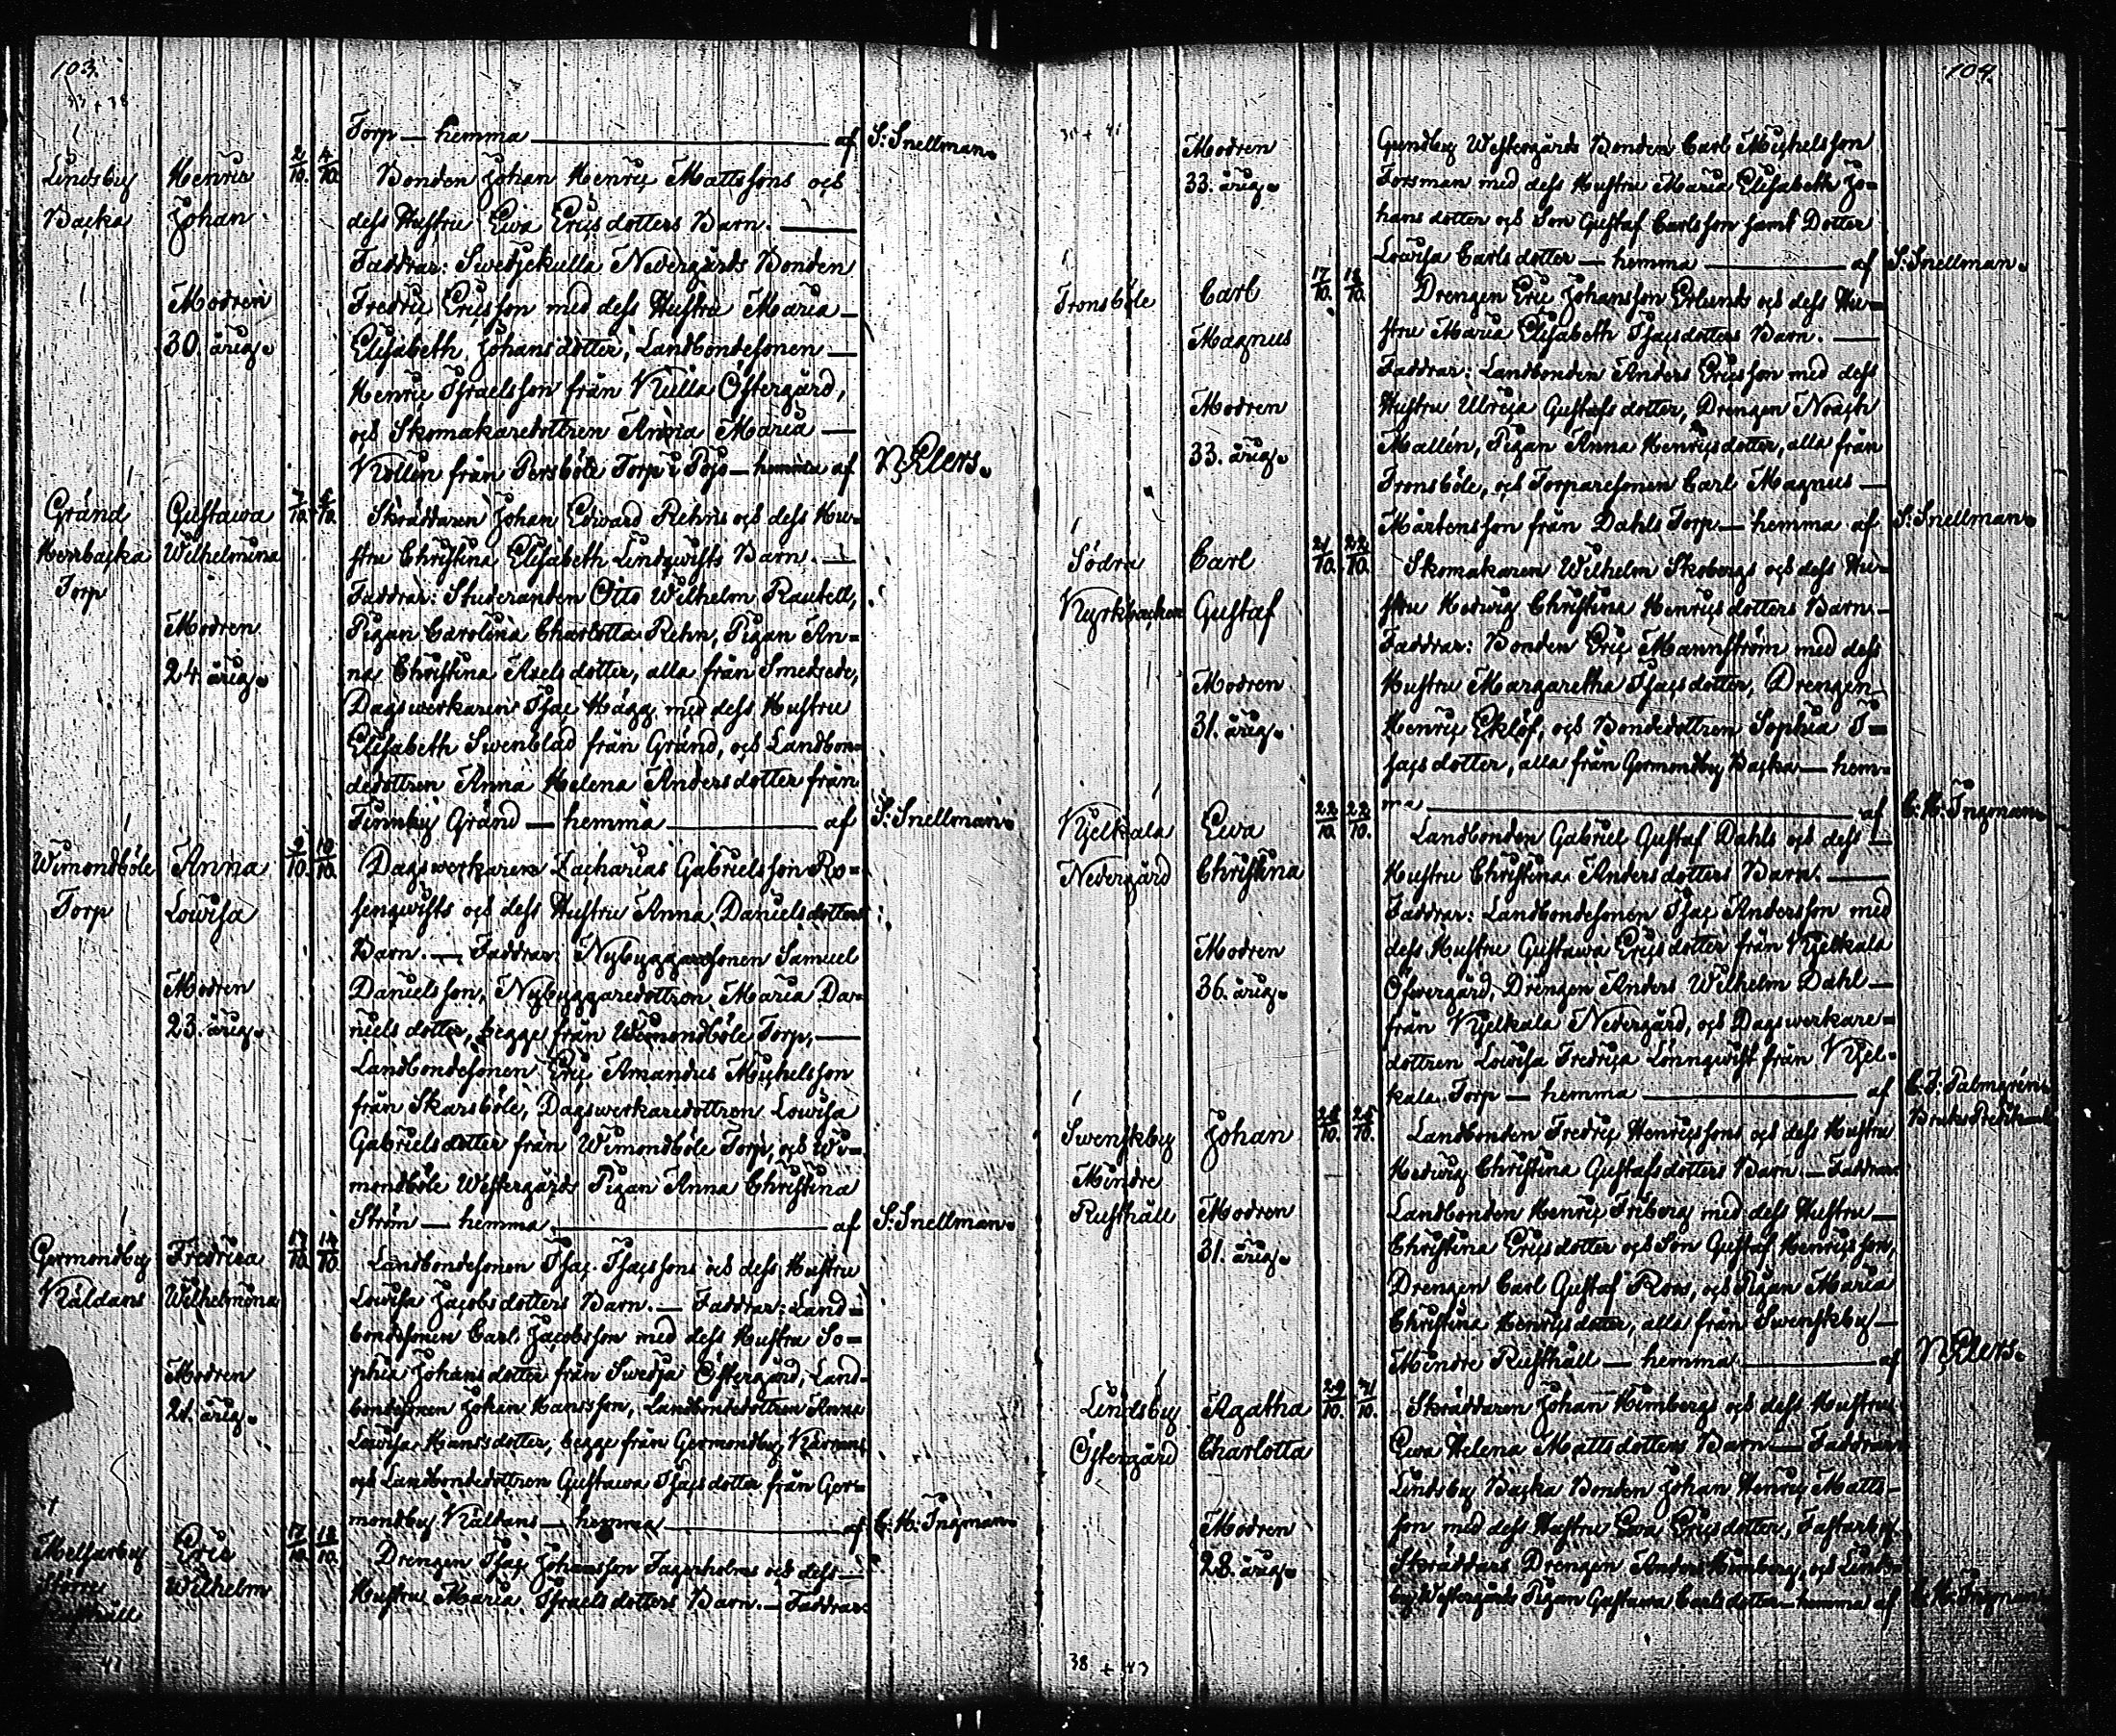 103.
33 + 38
Torp — hemma — af S: Snellman.
Lindsby Henric 2/10. 4/10. Bonden Johan Henric Mattssons och
Backa Johan dess Hustru Ewa Ericsdotters Barn. —
Faddrar: Swedjekulla Nedergårds Bonden
Modren Fredric Ericsson med dess Hustru Maria —
30. årig. Elisabeth Johansdotter, Landbondesonen —
Henric Israelsson från Kulla Östergård,
och Skomakaredottren Anna Maria —
från Persböle Torp i Pojo — hemma af N. Elers.
Gränd Gustawa 7/10. 8/10. Skräddaren Johan Edward Rehns och dess Hu-
Herrbacka Wilhelmina stru Christina Elisabeth Lindqwists Barn. —
Torp Faddrar: Studeranden Otto Wilhelm Rautell,
Modren Pigan Carolina Charlotta Rehn, Pigan An-
24. årig. na Christina Axelsdotter, alla från Smedsede,
Dagswerkaren Isac Hägg med dess Hustru
Elisabeth Swenblad från Gränd, och Landbon-
dedottren Anna Helena Andersdotter från
Finnby Gränd — hemma — af S: Snellman.
Wimondböle Anna 9/10. 10/10. Dagswerkaren Zacharias Gabrielsson Ro-
Torp Lowisa senqwists och dess Hustru Anna Danielsdotters
Barn. — Faddrar: Nybyggaresonen Samuel
Modren Danielsson, Nybyggaredottren Maria Da-
23. årig. nielsdotter, begge från Wimondböle Torp, —
Landbondesonen Eric Amandus Michelsson
från Skarsböle, Dagswerkaredottren Lowisa
Gabrielsdotter från Wimondböle Torp, och Wi-
mondböle Westergårds Pigan Anna Christina
Ström — hemma — af S: Snellman.
Germondby Fredrica 14/10. Landbondesonen Isac Isacssons och dess Hustru
Käldans Wilhelmina Lowisa Jacobsdotters Barn. — Faddrar: Land-
bondesonen Carl Jacobsson med dess Hustru So-
Modren phia Johansdotter från Swedja Östergård, Land-
årig. bondesonen Johan Hansson, Landbondedottren Anna
Lowisa Hansdotter, begge från Germondby
och Landbondedottren Gustawa Isacsdotter från Ger-
mondby Käldans — hemma — af C: H: Ingman.
Melfarby Eric 17/10. 18/10. Drengen Isac Johansson Fagerholms och dess —
Större Wilhelm Hustru Maria Israelsdotters Barn. — Faddrar:
41
104.
Modren Gundby Westergårds Bonden Carl Michelsson
33. årig. Forsman med dess Hustru Maria Elisabeth Jo-
hansdotter och Son Gustaf Carlsson samt Dotter
Lowisa Carlsdotter — hemma — af S: Snellman.
Tronsböle Carl 17/10. 18/10. Drengen Eric Johansson Erlunds och dess Hu-
Magnus stru Maria Elisabeth Isacsdotters Barn. —
Faddrar: Landbonden Anders Ericsson med dess
Modren Hustru Ulrica Gustafsdotter, Drengen Noach
33. årig. Mallén, Pigan Anna Henricsdotter, alla från
Tronsböle, och Torparesonen Carl Magnus —
Mårtensson från Dahls Torp — hemma af S: Snellman.
Södra Carl 21/10. 22/10. Skomakaren Wilhelm Skobergs och dess Hu-
Kyrkbacken Gustaf stru Hedwig Christina Henricsdotters Barn. —
Faddrar: Bonden Eric Mannström med dess
Modren Hustru Margaretha Isacsdotter, Drengen
31. årig. Henric Eklöf, och Bondedottren Sophia I-
sacsdotter, alla från Germondby Backa — hem-
ma — af C: H: Ingman.
Kjelkala Ewa 22/10. 22/10. Landbonden Gabriel Gustaf Dahls och dess —
Nedergård Christina Hustru Christina Andersdotters Barn. —
Faddrar: Landbondesonen Isac Andersson med
Modren dess Hustru Gustawa Ericsdotter från Kjelkala
36. årig. Öfwergård, Drengen Anders Wilhelm Dahl —
från Kjelkala Nedergård, och Dagswerkare-
dottren Lowisa Fredrica Lönnqwist från Kjel-
kala Torp — hemma — af C: J: Palmgrén
Swenskby Johan 25/10. Landbonden Fredric Henricssons och dess Hustru
Mindre Hedwig Christina Gustafsdotters Barn. — Faddrar:
Rusthåll Modren Landbonden Henric Friberg med dess Hustru —
31. årig. Christina Ericsdotter och Son Gustaf Henricsson,
Drengen Carl Gustaf Roos, och Pigan Maria
Christina Henricsdotter, alla från Swenskby —
Mindre Rusthåll — hemma — af N. Elers.
Lindsby Agatha 29/10. 31/10. Skräddaren Johan Himbergs och dess Hustru
Östergård Charlotta Ewa Helena Mattsdotters Barn. — Faddrar:
Lindsby Backa Bonden Johan Henric Matts-
Modren son med dess Hustru Ewa Ericsdotter, Fastarby
28. årig. Skräddars Drengen Anders Himberg, och Linds-
by Westergårds Pigan Gustawa Carlsdotter — hemma af C: H: Ingman
38 + 43